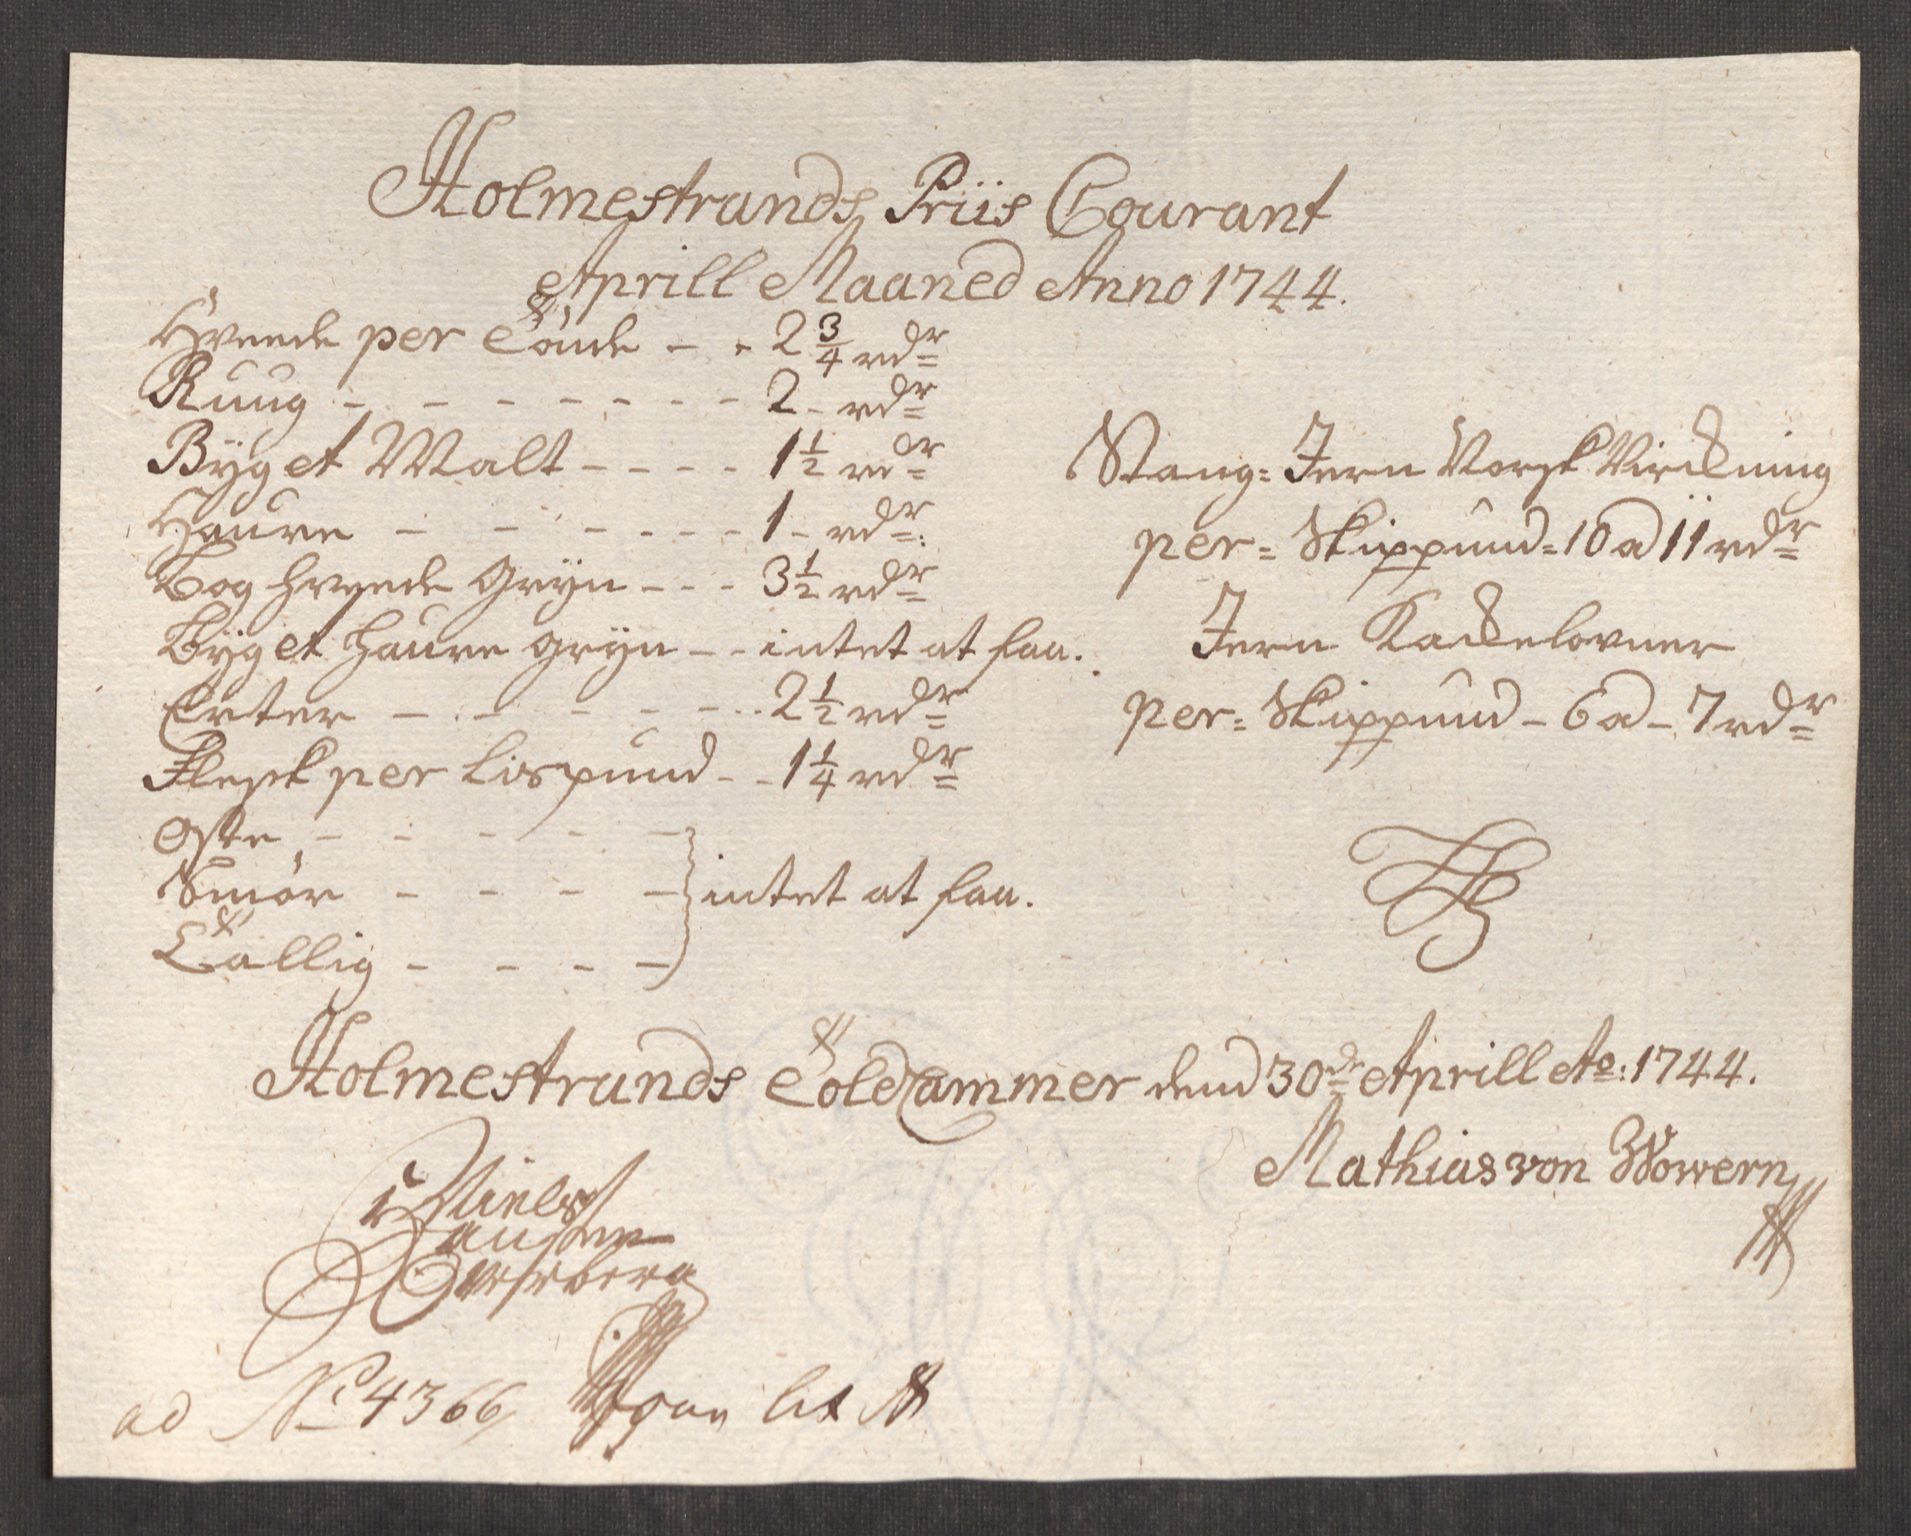 Holmestrands Priis Courant
Aprill Maaned Anno 1744.
Hveede per Tönde - - 2 3/4 rdr
Ruug - - - - - - - 2 - rdr
Byg et Malt - - - - 1 1/2 rdr
Haure - - - - - - 1 - rdr:
Boghvede Gryn - - - 3 1/2 rdr
Byg et Haure gryn - - intet at faa.
Erter - - - - - - 2 1/2 rdr
Flesk per Lispund - - 1 1/4 rdr
Oste - - - - -
Smör - - - - intet at faa.
Tallig - - - -
Stang = Jern Norsk Virckning
per = Skippund = 10 a 11 rdr
Jern Kackelovner
per = Skippund - 6 a - 7 rdr
Holmestrands ToldCammer dend 30de Aprill Ao: 1744.
Mathias von Wowern
Niels
Hansen
ad No 4366